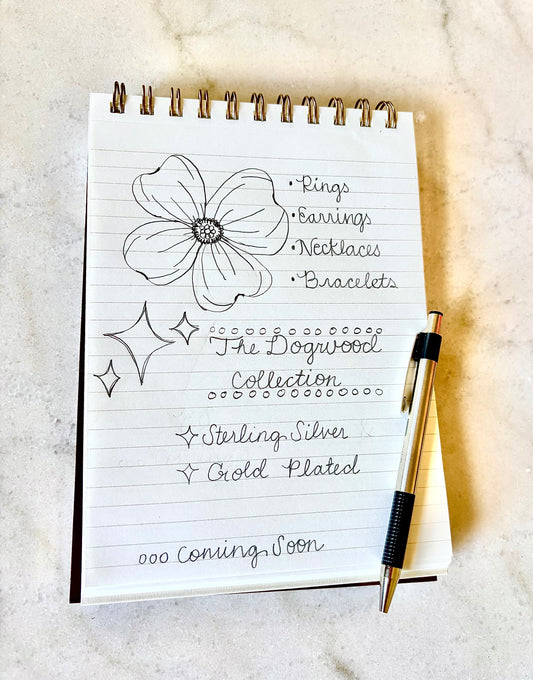 • Rings
• Earrings
• Necklaces
• Bracelets
The Dogwood
Collection
Sterling Silver
Gold Plated
ooo Coming Soon